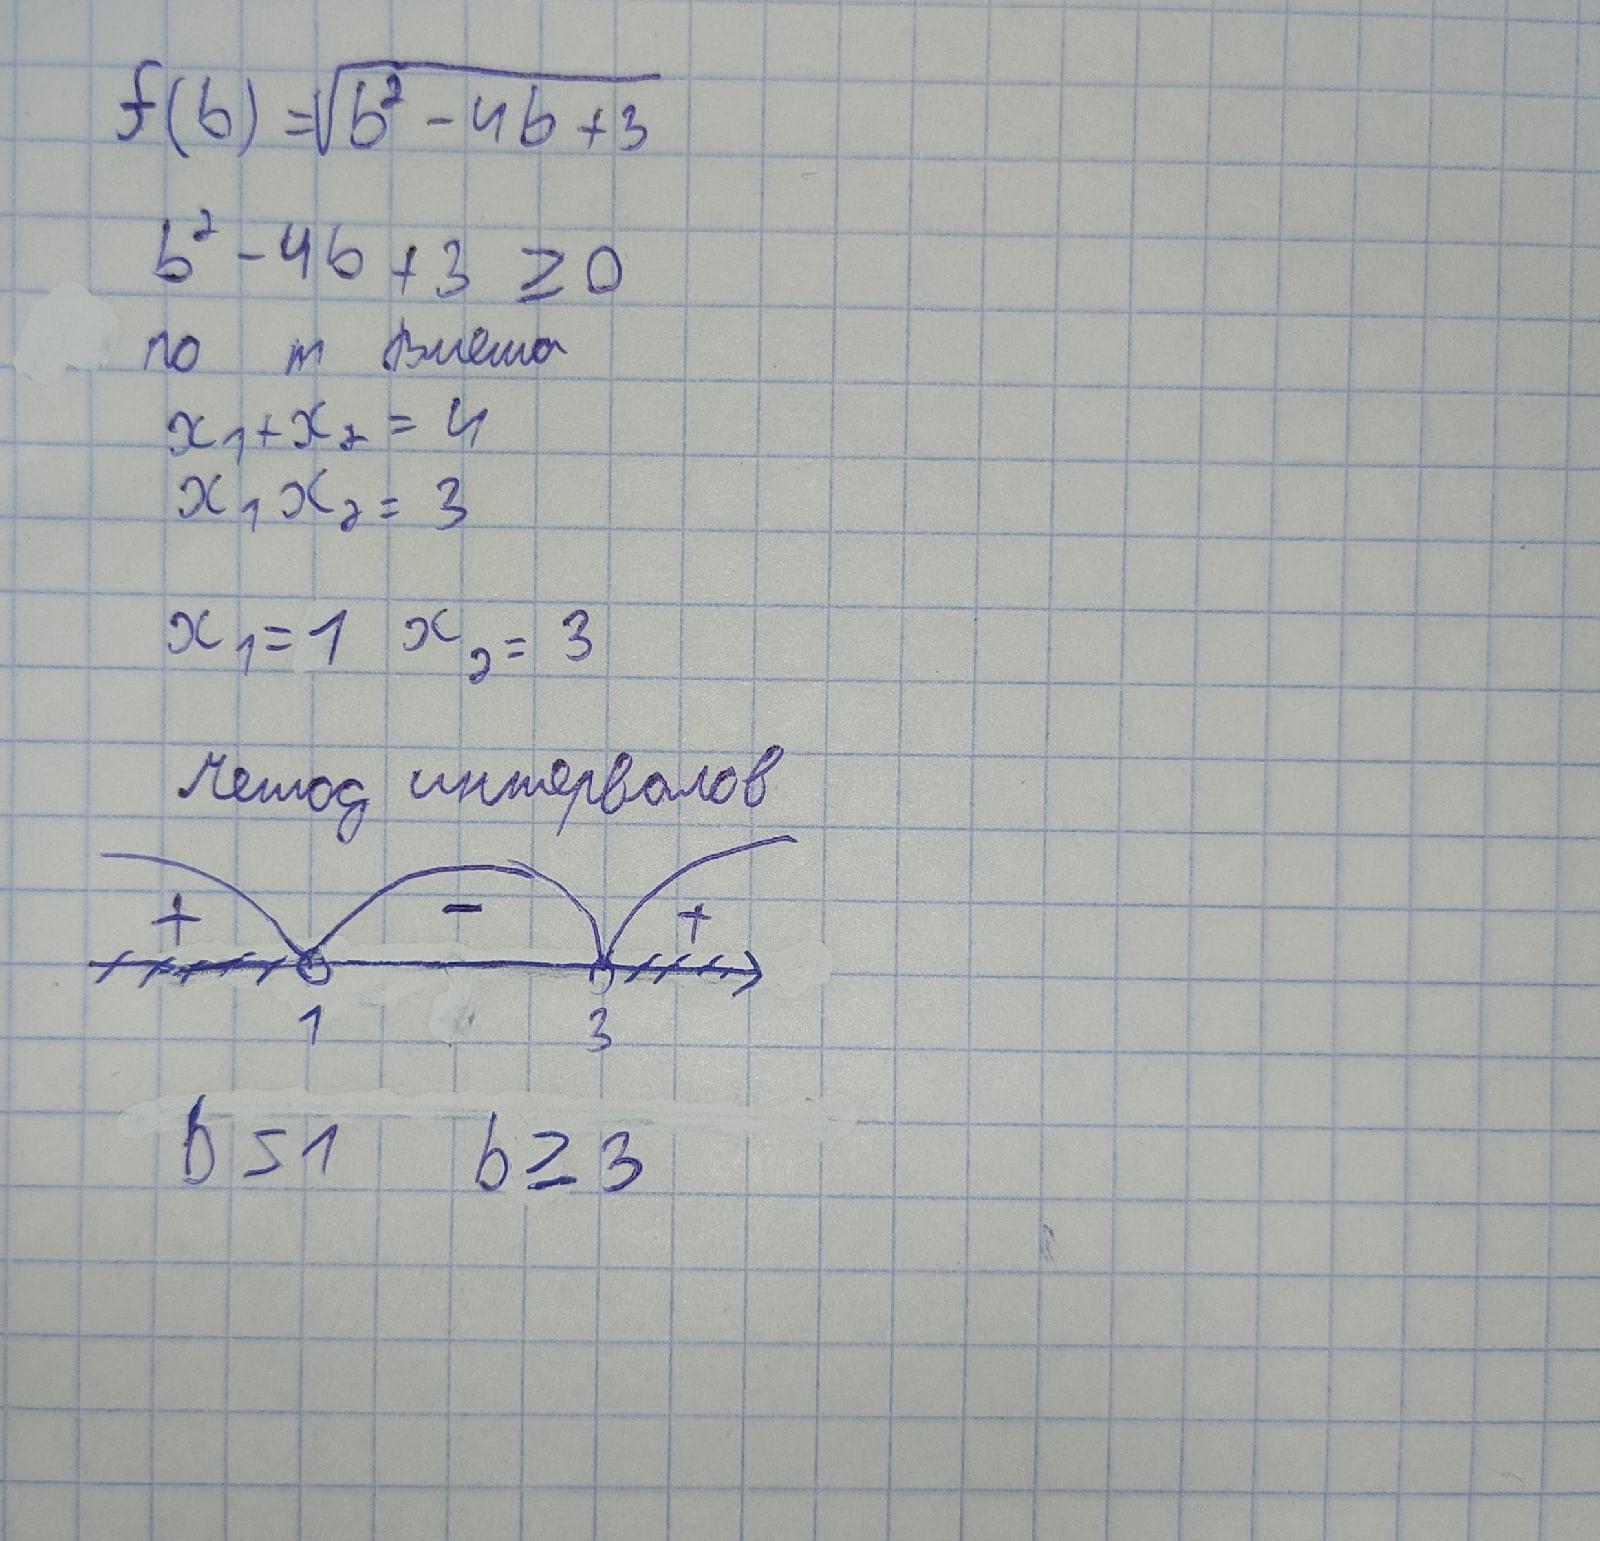 f(b) = √(b² - 4b + 3)
b² - 4b + 3 ≥ 0
по т Виета
x₁ + x₂ = 4
x₁ x₂ = 3
x₁ = 1 x₂ = 3
Метод интервалов
+ - +
1 3
b > 1 b ≥ 3